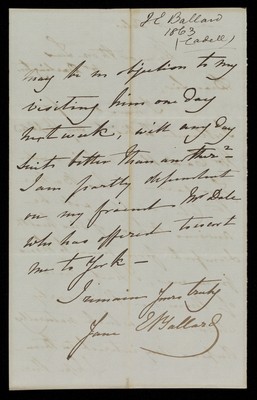 J E Ballard
1863
(-Cadell)
may be no objection to my
visiting him one day
next week, will any day
suit better than another?
I am partly dependent
on my friend Mr Dale
who has offered to escort
me to York —
I remain yours truly
Jane E Ballard